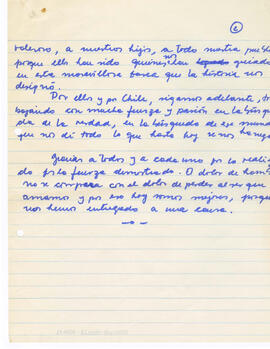 c
valeroso, a nuestros hijos, a todo nuestro pueblo
porque ellos han sido quienes nos han guiado
en esta maravillosa tarea que la historia nos
designó.
Por ellos y por Chile, sigamos adelante, tra
bajando con mucha fuerza y pasión en la búsque
da de la verdad, en la búsqueda de ese mundo
que nos dé todo lo que hasta hoy se nos ha nega
Gracias a todos y a cada uno por lo reali
do y la fuerza demostrada. El dolor de hambre
no se compara con el dolor de perder al ser que
amamos y por eso hoy somos mejores, porque
nos hemos entregado a una causa.